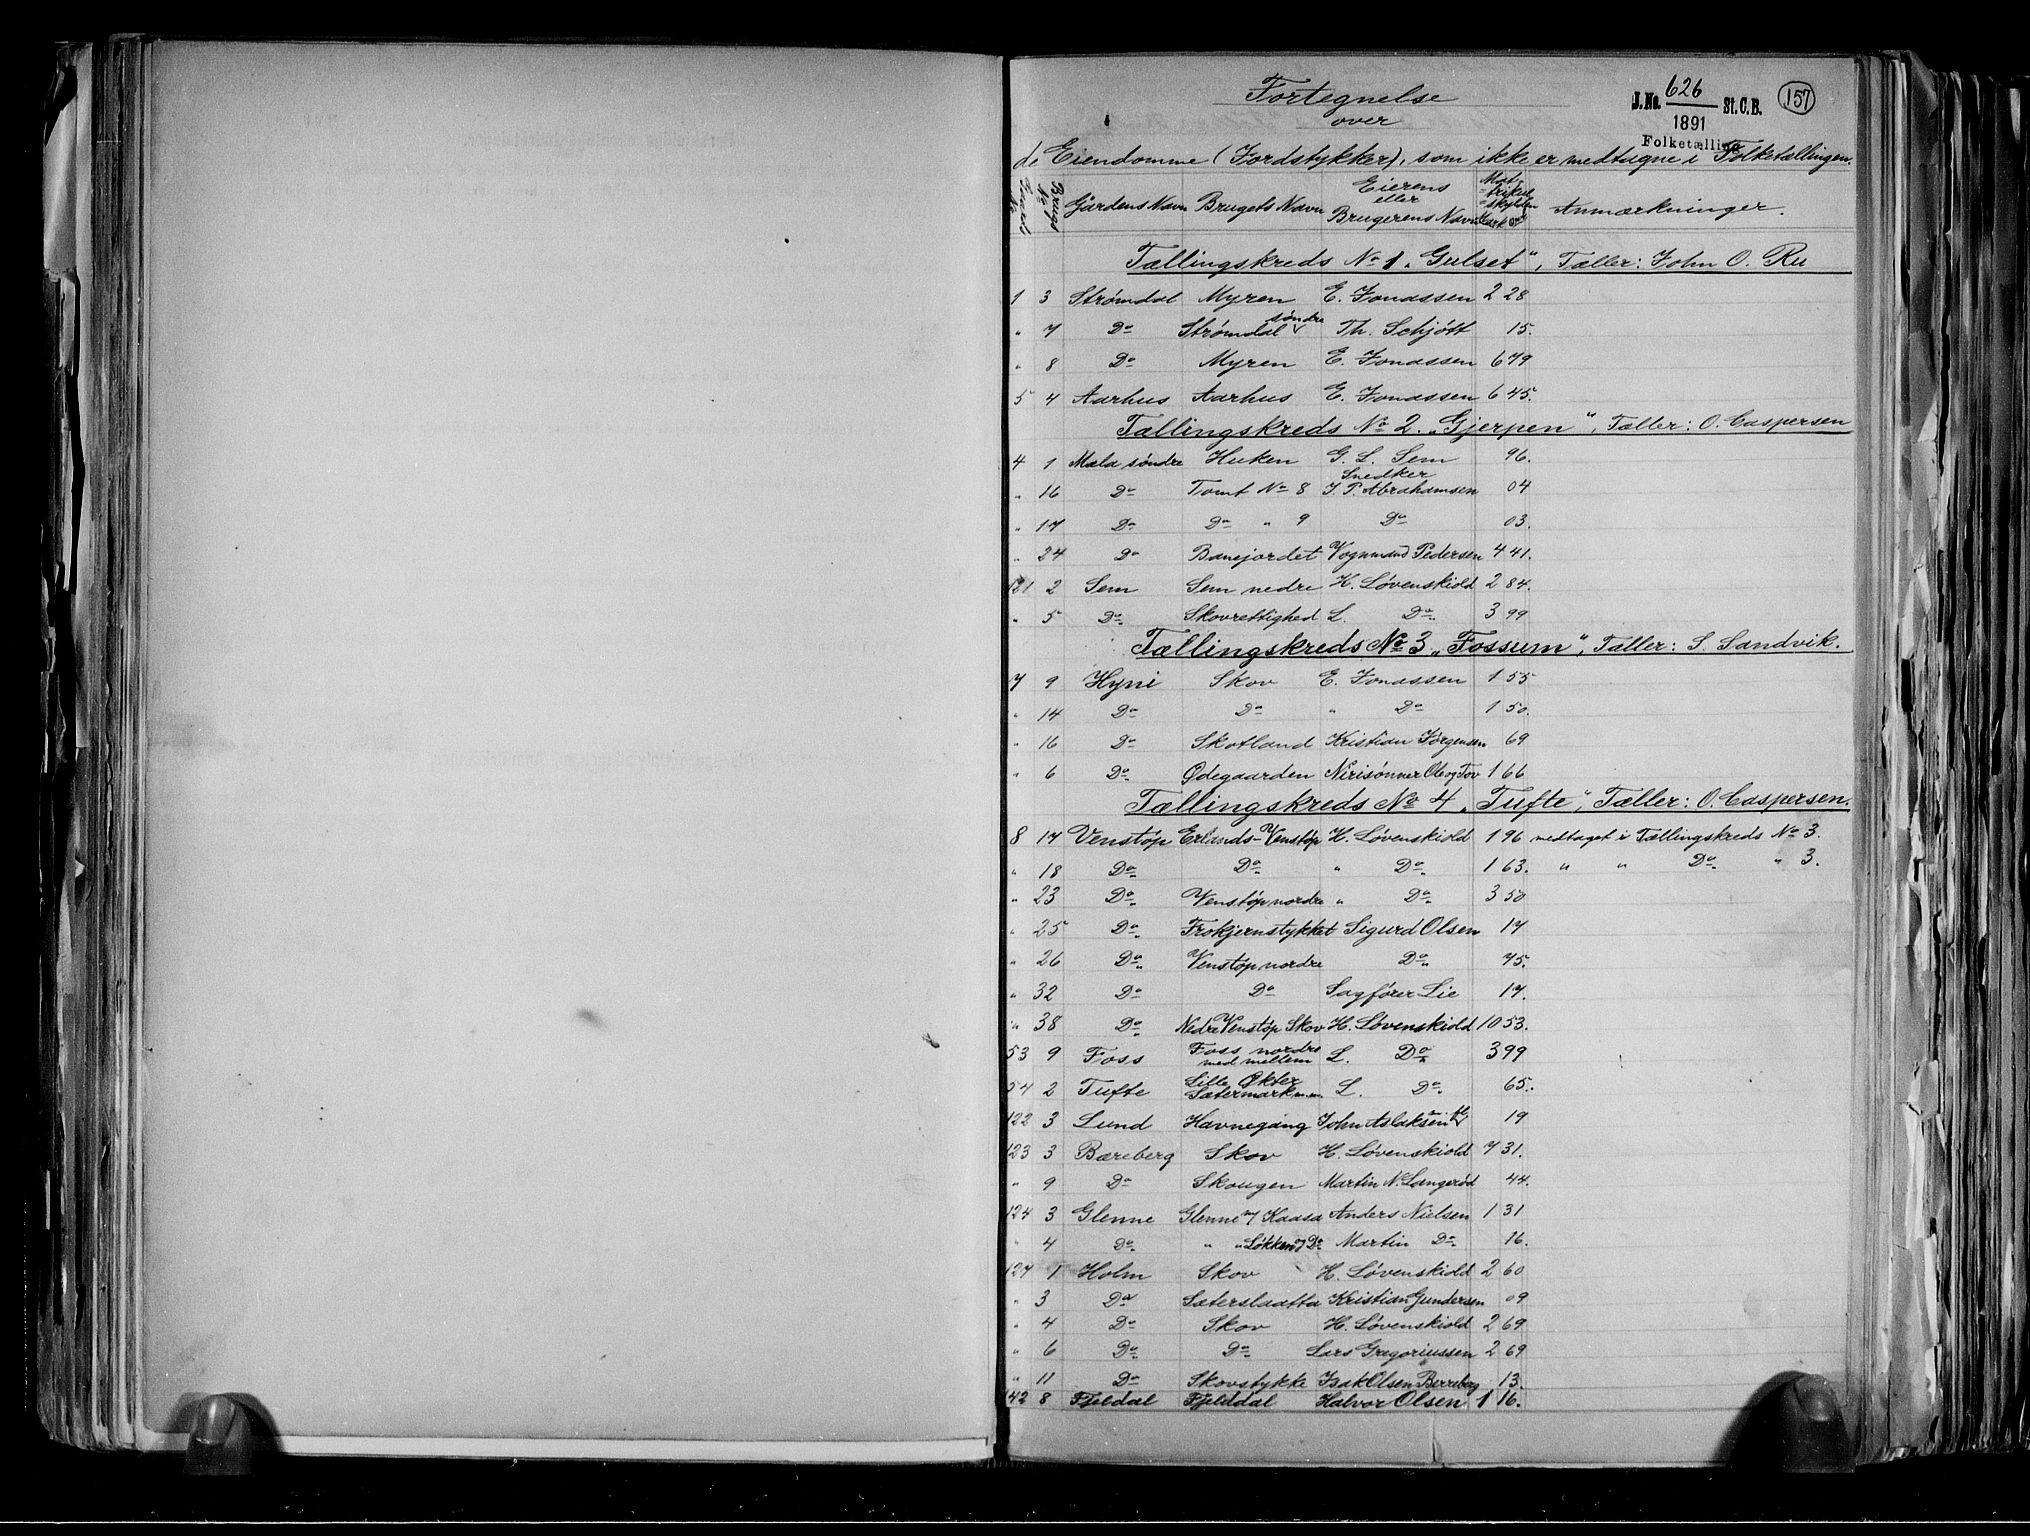 Fortegnelse
over
J. No. 626 St. C. B. 157
1891
Folketælling
de Eiendomme (Jordstykker), som ikke er medtagne i Folketællingen.
Gaards No Brugs No Gårdens Navn Brugets Navn Eierens eller Brugerens Navn Matrikul skylden Mark Øre Anmærkninger.
Tællingskreds No 1 „Gulset“, Tæller: John O. Ru
1 3 Strømdal Myren E. Jonassen 2 28
„ 7 Do Strømdal søndre Th. Schjött 15.
„ 8 Do Myren E. Jonassen 6 79
5 4 Aarhus Aarhus E. Jonassen 6 45.
Tællingskreds No 2. „Gjerpen“, Tæller: O. Caspersen
4 1 Mæla søndre Huken G. L. Sem 96.
„ 16 Do Tomt No 8 Snedker J. P. Abrahamsen 04
„ 17 Do Do „ 9 Do 03.
„ 24 Do Banejordet Vognmand Pedersen 4 41.
121 2 Sem Sem nedre H. Løvenskiold 2 84.
„ 5 Do Skovrettighed L. Do 3 99
Tællingskreds No 3 „Fossum“, Tæller: S. Sandvik.
7 9 Hyni Skov E. Jonassen 1 55
„ 14 Do Do „ Do 1 50.
„ 16 Do Skotland Kristian Jørgensen 69
„ 6 Do Ødegaarden Nirisønner Ole og Tov 1 66
Tællingskreds No 4 „Tufte“, Tæller: O. Caspersen.
8 17 Venstøp Erlands-Venstøp H. Løvenskiold 1 96 medtaget i Tællingskreds No 3.
„ 18 Do Do „ Do 1 63. „ „ Do „ 3.
„ 23 Do Venstøp nordre „ Do 3 50
„ 25 Do Frokjernstykket Sigurd Olsen 17
„ 26 Do Venstøp nordre Do 75.
„ 32 Do Do Sagfører Lie 17.
„ 38 Do Nedre Venstøp Skov H. Løvenskiold 10 53.
53 9 Foss Foss nordre med mellem L. Do 3 99
54 2 Tufte Lille Økter Sætermark m.m. L. Do 65.
122 3 Lund Havnegang John Aslaksen 19
123 3 Bæreberg Skov H. Løvenskiold 7 31.
„ 9 Do Skougen Martin N. Langerød 44.
124 3 Glenne Glenne m/ Kaasa Anders Nielsen 1 31
„ 4 Do „ „ Løkken og Do Martin Do 16.
127 1 Holm Skov H. Løvenskiold 2 60
„ 3 Do Sæterslaatta Kristian Gundersen 09
„ 4 Do Skov H. Løvenskiold 2 69
„ 6 Do Do Lars Gregoriussen 2 69
„ 11 Do Skovstykke Isak Olsen Berreberg 13.
142 8 Fjeldal Fjelddal Halvor Olsen 1 16.